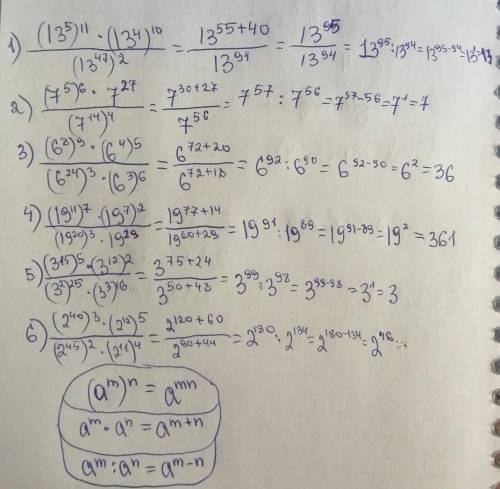 1) (13^5)^11 · (13^4)^10 / (13^47)^2 = 13^55+40 / 13^94 = 13^95 / 13^94 = 13^95 : 13^94 = 13^95-94 = 13^1 = 13
2) (7^5)^6 · 7^27 / (7^14)^4 = 7^30+27 / 7^56 = 7^57 : 7^56 = 7^57-56 = 7^1 = 7
3) (6^8)^9 · (6^4)^5 / (6^24)^3 · (6^3)^6 = 6^72+20 / 6^72+18 = 6^92 : 6^90 = 6^92-90 = 6^2 = 36
4) (19^11)^7 · (19^7)^2 / (19^20)^3 · 19^29 = 19^77+14 / 19^60+29 = 19^91 : 19^89 = 19^91-89 = 19^2 = 361
5) (3^15)^5 · (3^12)^2 / (3^2)^25 · (3^3)^16 = 3^75+24 / 3^50+48 = 3^99 : 3^98 = 3^99-98 = 3^1 = 3
6) (2^40)^3 · (2^12)^5 / (2^45)^2 · (2^11)^4 = 2^120+60 / 2^90+44 = 2^180 : 2^134 = 2^180-134 = 2^46
(a^m)^n = a^mn
a^m · a^n = a^m+n
a^m : a^n = a^m-n